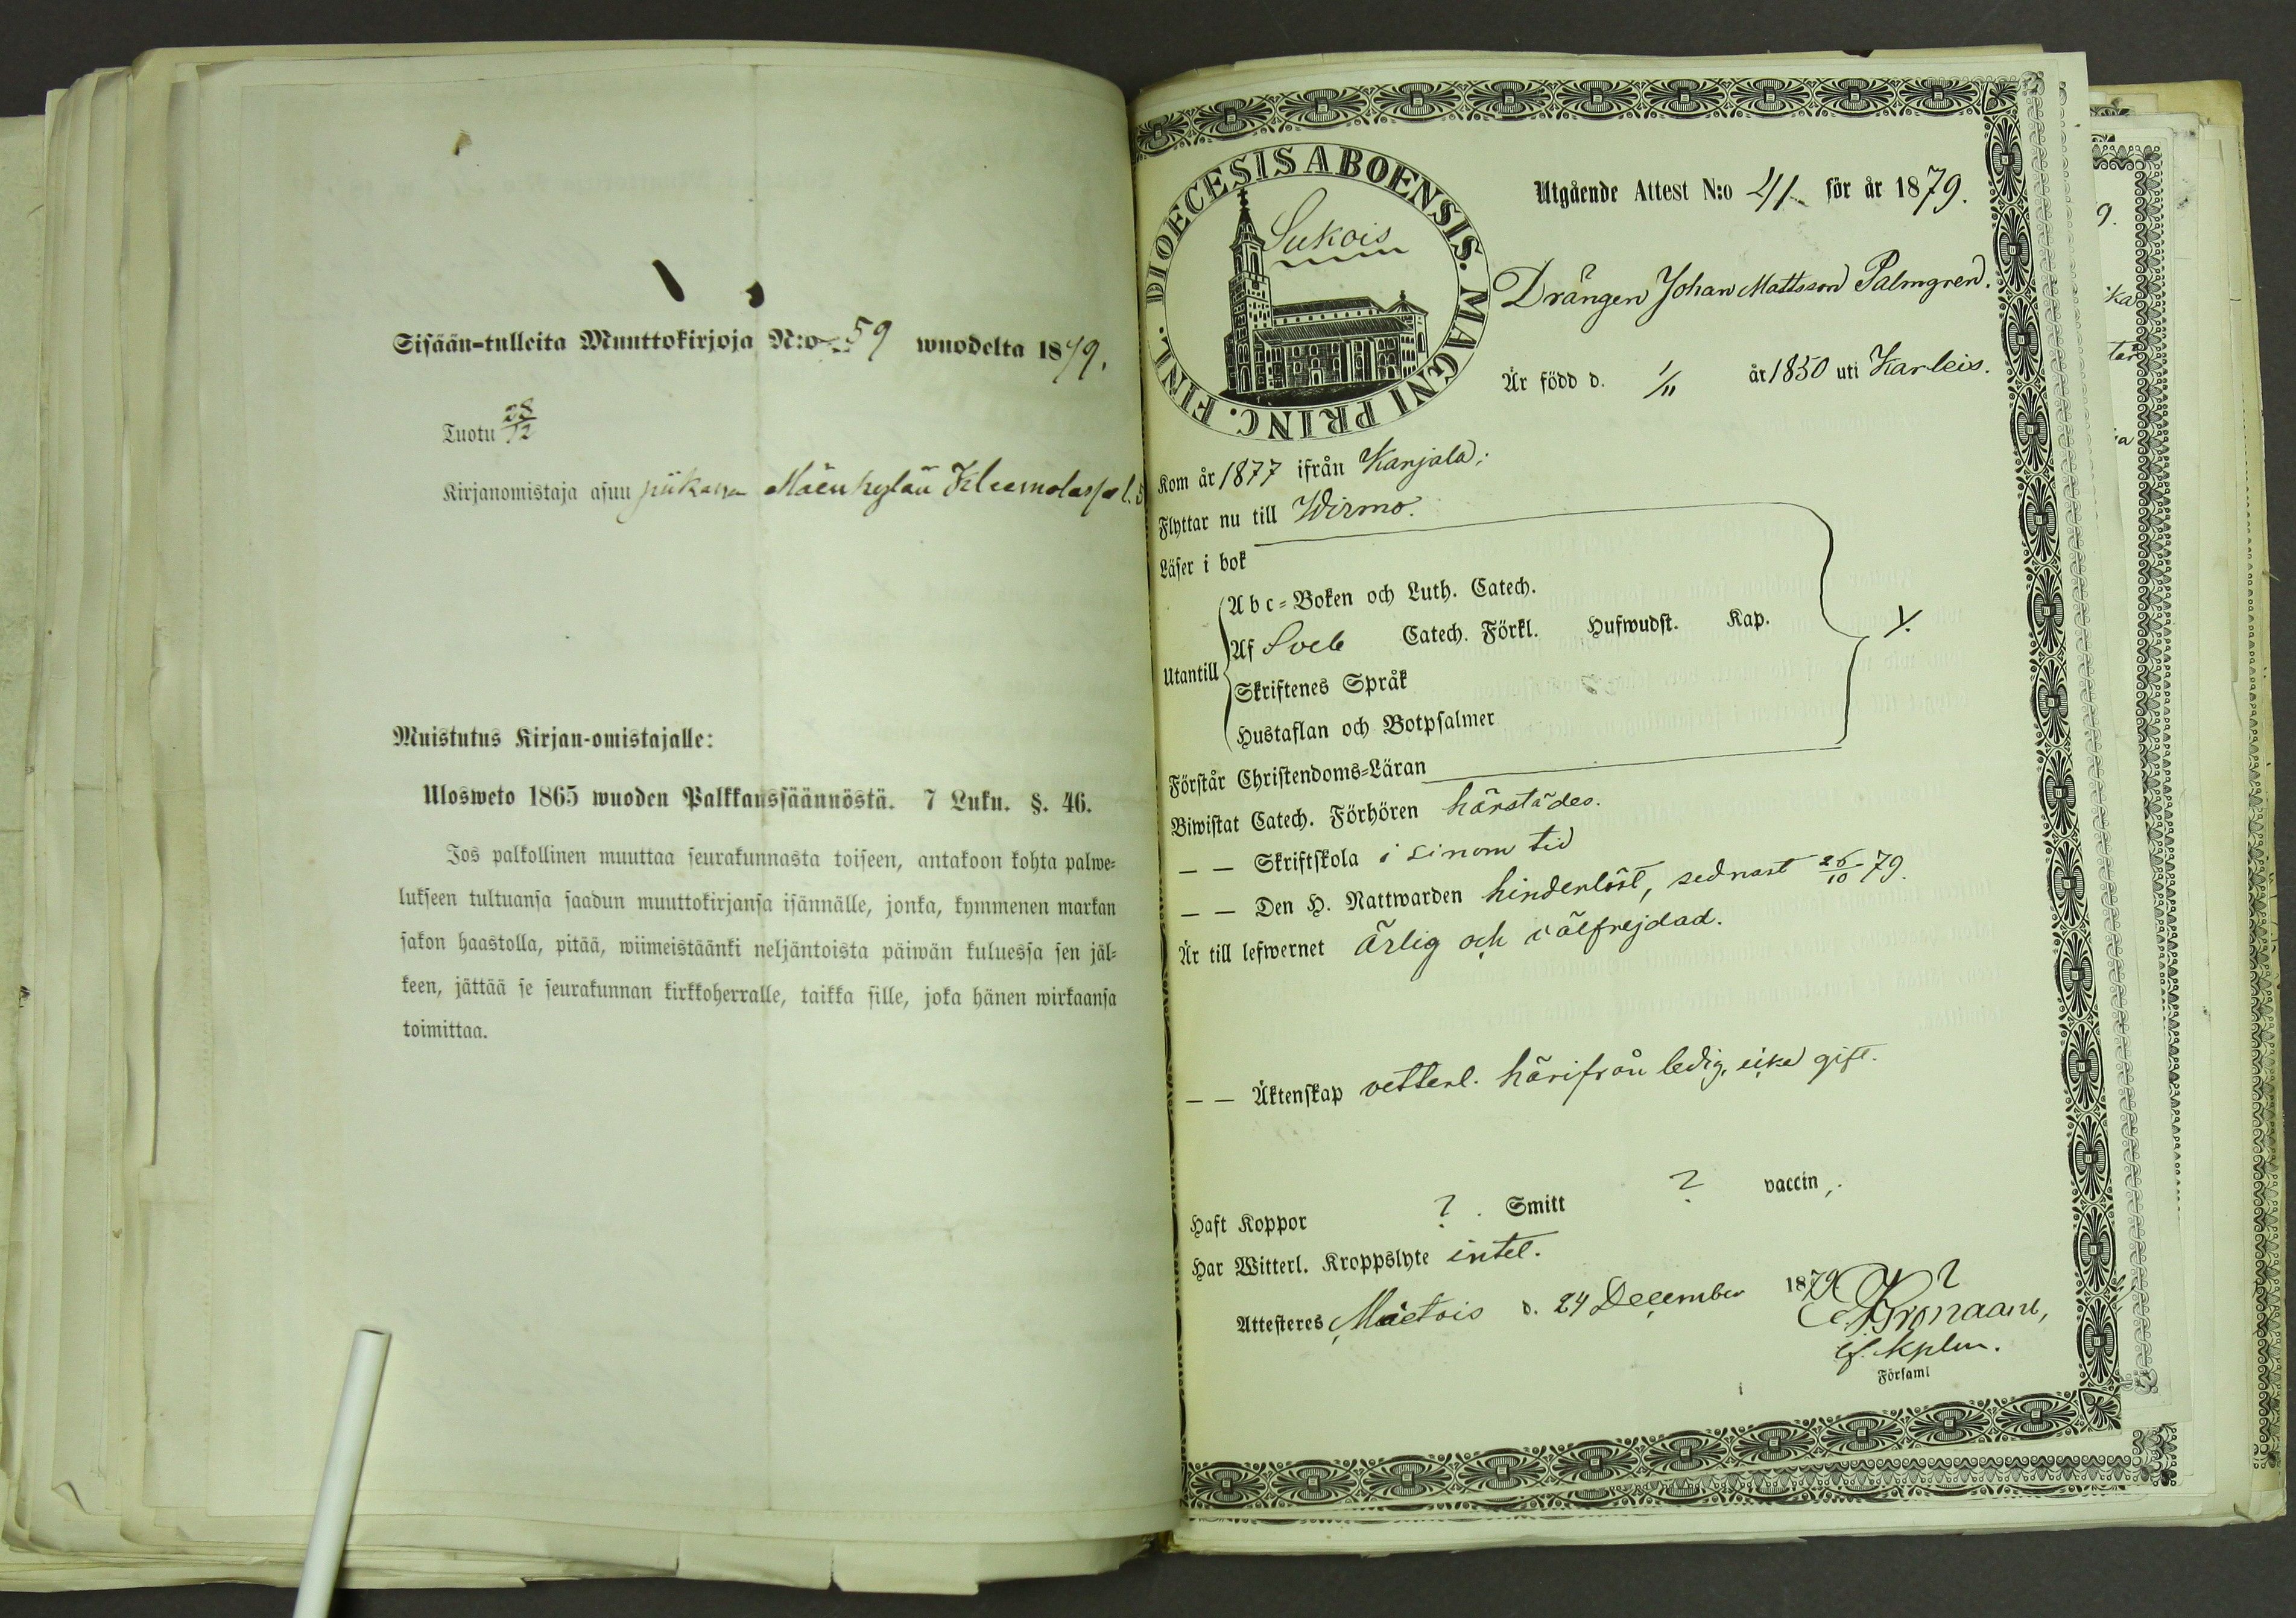 Sisään-tulleita Muuttokirjoja N:o 59 wuodelta 1879.
Tuotu 28/12
Kirjanomistaja asuu piikana Mäenkylän Kleemolassa
Muistutus Kirjan-omistajalle:
Ulosweto 1865 wuoden Palkkaussäännöstä. 7 Luku. §. 46.
Jos palkollinen muuttaa seurakunnasta toiseen, antakoon kohta palwe-
lukseen tultuansa saadun muuttokirjansa isännälle, jonka, kymmenen markan
sakon haastolla, pitää, wiimeistäänki neljäntoista päiwän kuluessa sen jäl-
keen, jättää se seurakunnan kirkkoherralle, taikka sille, joka hänen wirkaansa
toimittaa.
DIOECESIS ABOENSIS. MAGNI PRINC. FINL.
Sukois
Utgående Attest N:o 41 för år 1879.
Drängen Johan Mattsson Palmgren.
Är född d. 1/11 år 1850 uti Karleis.
Kom år 1877 ifrån Karjala;
Flyttar nu till Wirmo.
Läser i bok
Utantill
Abc-Boken och Luth. Catech.
Af Sveb Catech. Förkl. Hufwudst. Kap.
Skriftenes Språk
Hustaflan och Botpsalmer
Förstår Christendoms-Läran
Biwistat Catech. Förhören härstädes.
— — Skriftskola i sinom tid
— — Den H. Nattwarden hinderlöst, sednast 26/10 79.
Är till lefwernet ärlig och välfrejdad.
— — Äktenskap vetterl. härifrån ledig, icke gift.
Haft Koppor ? . Smitt ? vaccin.
Har Witterl. Kroppslyte intet.
Attesteres d. 24 December 1879
Församl
i